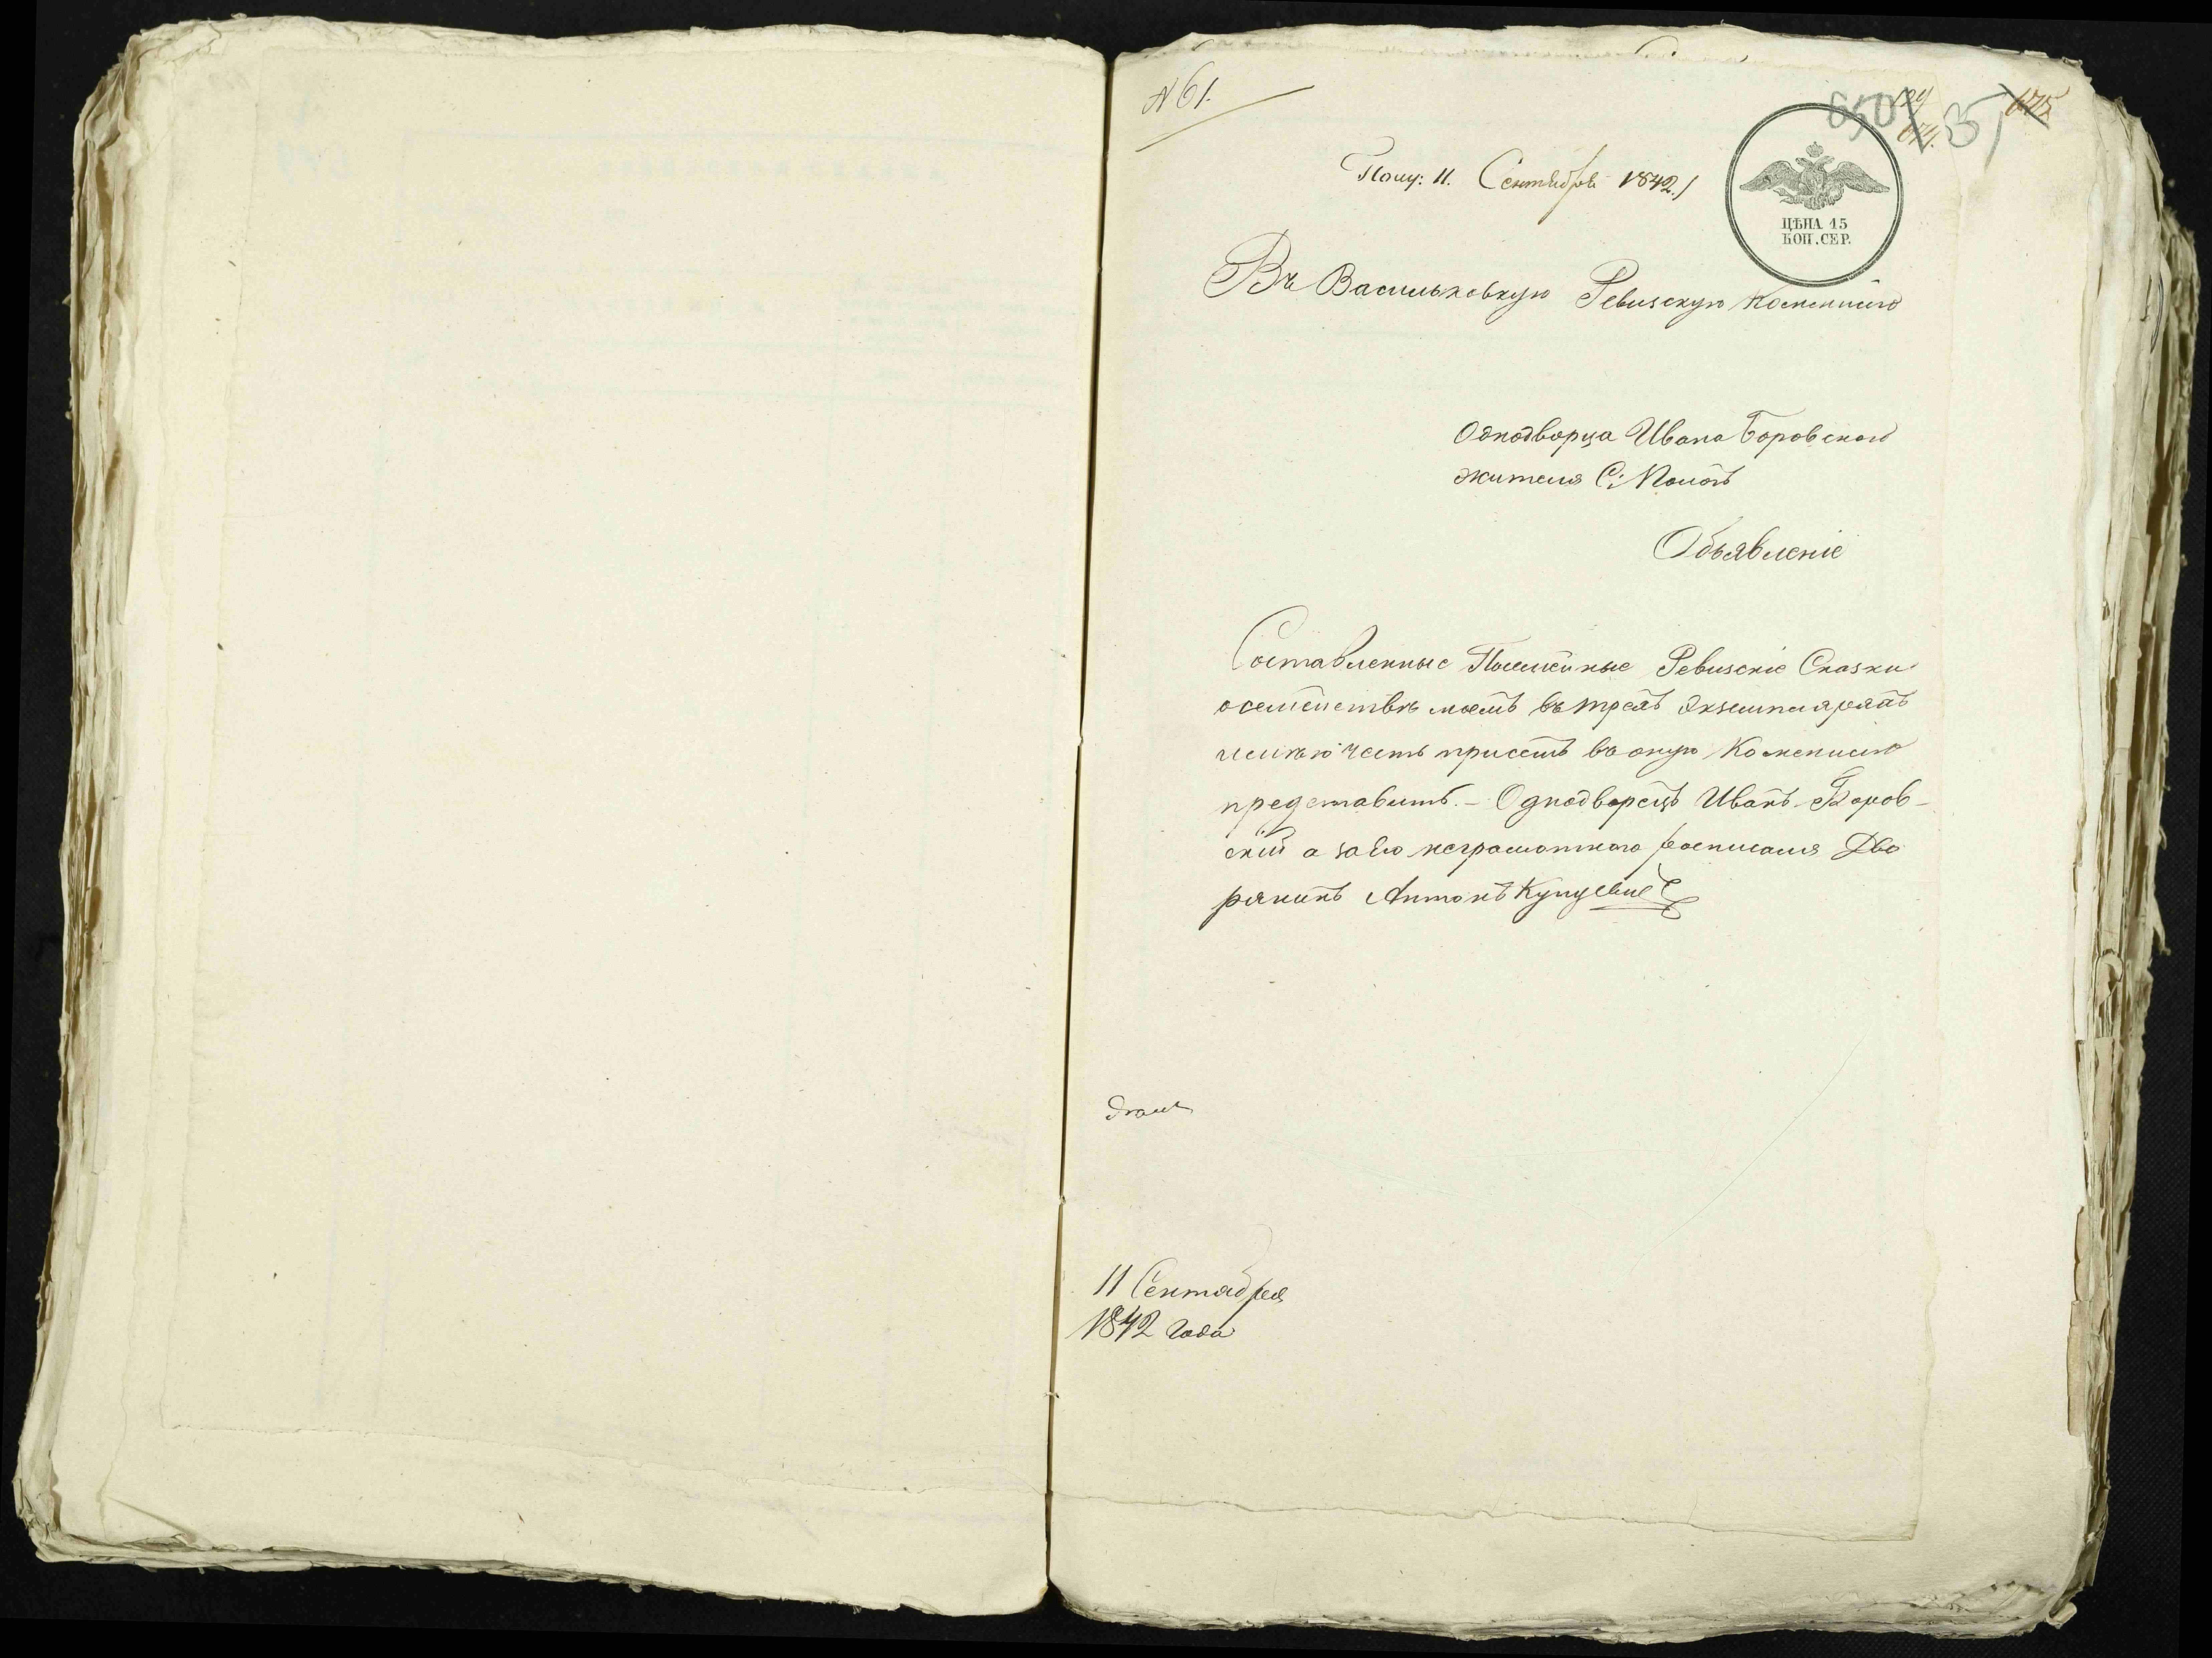 № 61.
650
35
Полу: 11. Сентября 1842./
ЦѢНА 15
КОП. СЕР.
Въ Васильковкую Ревизскую Коммиссію
Однодворца Ивана Боровского
жителя С:
Объявленіе
Составленные Посемейные Ревизскіе Сказки
осемействѣ моемъ въ трехъ Экземплярахъ
имѣю честь присемъ во оную Коммисію
представить. – Однодворецъ Иванъ Боров-
скій а заего неграмотного росписался Дво
рянинъ Антонъ
11 Сентября
1842 Года